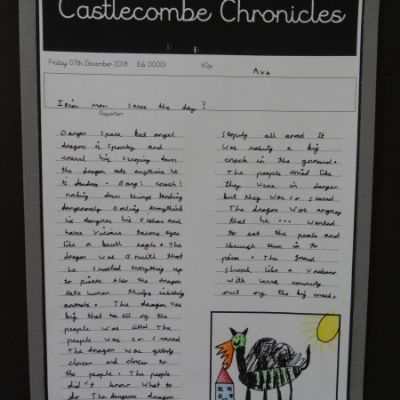 Castlecombe Chronicles
Friday 07th December 2018 Ed: 00001 60p
AVA
Iron man saves the day?
Reporter:
Danger Space bat angel
dragon is spooky and
the dragon eats anything he
is dandros. Bang! crash!
nocking down things landing
dangerously Boiling everything
he dangrus his vishas and
have vicious talons eyes
like a boath eagle. The
dragon was
he smashed everything up
to pieces Also the dragon
eats human things
animals. The dragon was
big that he all of the
people was littel The
people was so scared
The dragon was getting
closer and closer to
the people. The people
did't know What to
do The dangerus dragon
all around It
was making a big
crack in the ground.
The people like
they were in danger
but they was so scared.
The dragon was angrey
that he ... wanted
to eat the people and
them in to
pices. The ground
shook like a
with larva coming
out of the big crack.